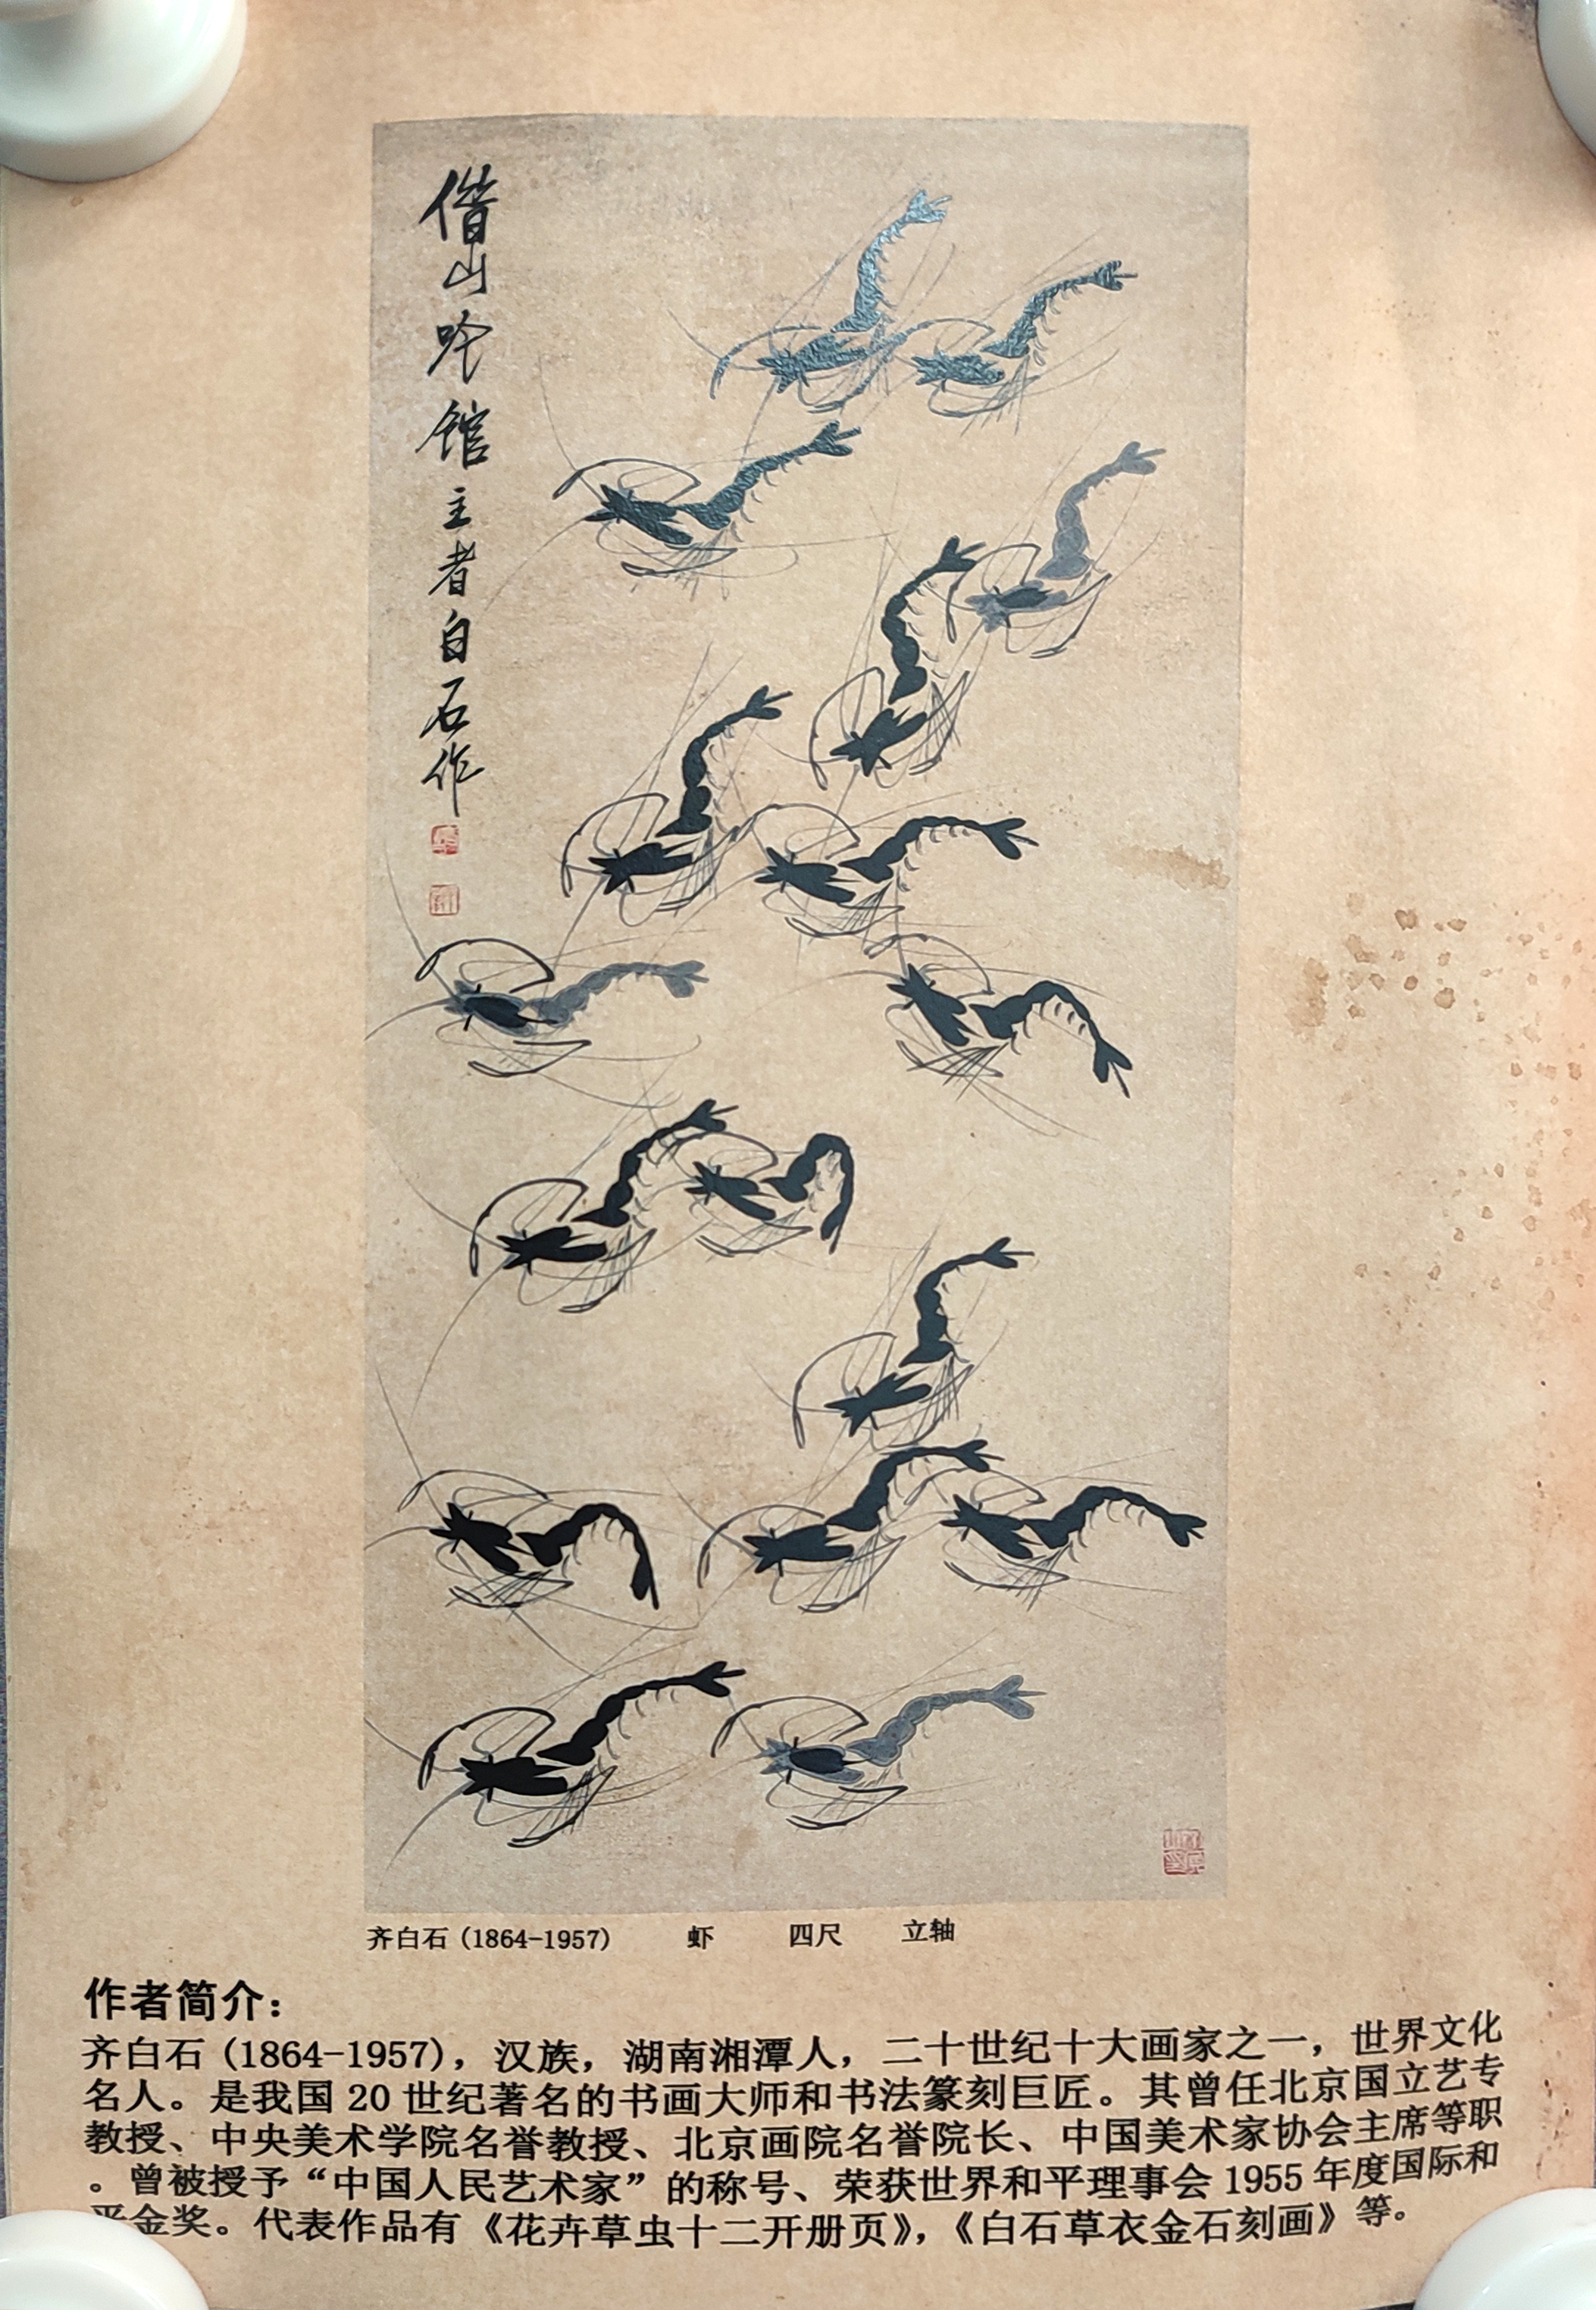 借山吟馆主者白石作
齐白石（1864-1957） 虾 四尺 立轴
作者简介：
齐白石（1864-1957），汉族，湖南湘潭人，二十世纪十大画家之一，世界文化
名人。是我国 20 世纪著名的书画大师和书法篆刻巨匠。其曾任北京国立艺专
教授、中央美术学院名誉教授、北京画院名誉院长、中国美术家协会主席等职
。曾被授予“中国人民艺术家”的称号、荣获世界和平理事会 1955 年度国际和
平金奖。代表作品有《花卉草虫十二开册页》，《白石草衣金石刻画》等。